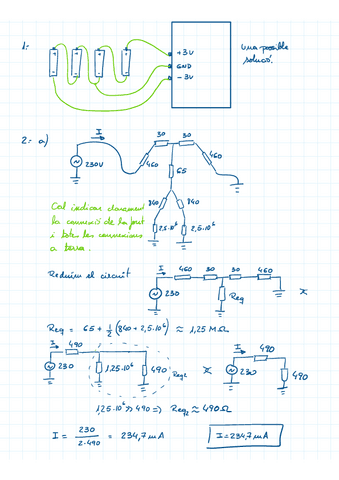 1=
+3V
GND
-3V
Una possible
solució.
2= a)
I
30 30
460 460
230V
65
840 840
2,5·10⁶ 2,5·10⁶
Cal indicar clarament
la connexió de la font
i totes les connexions
a terra.
Reduïm el circuit
I 460 30 30 460
230
Req
Req = 65 + 1/2 (840 + 2,5·10⁶) ≈ 1,25 MΩ
I 490
230 1,25·10⁶ 490 Req2
I 490
230 490
1,25·10⁶ >> 490 => Req2 ≈ 490Ω
I = 230 / 2·490 = 234,7 mA
I = 234,7 mA